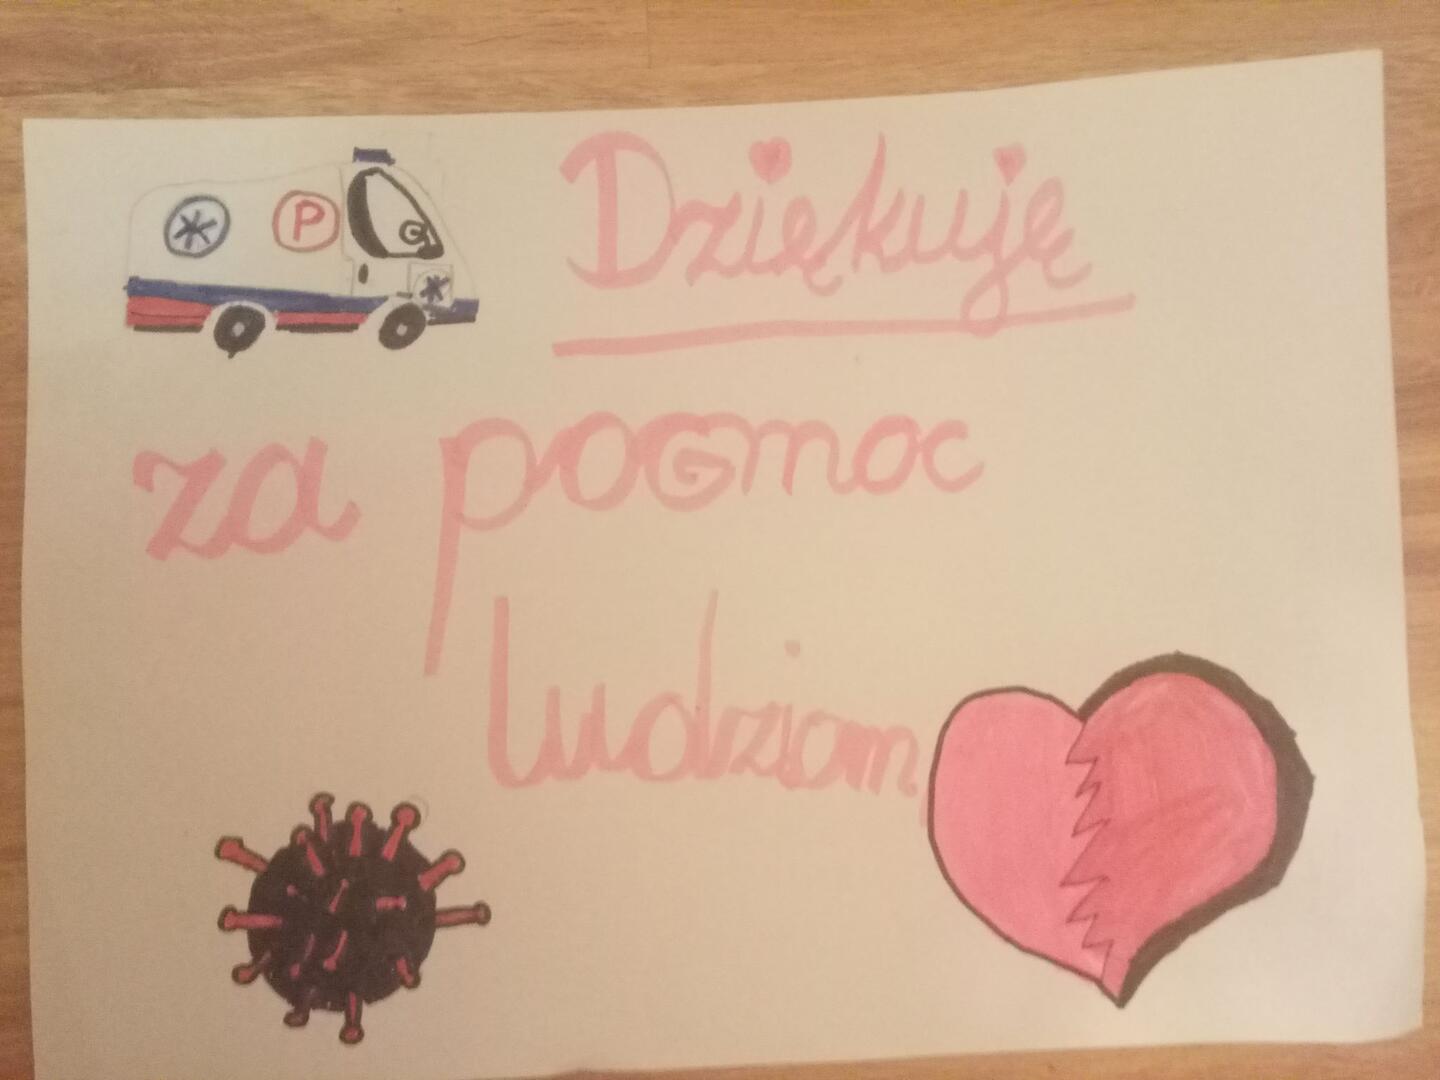 P
Dziękuję
za pomoc
ludziom